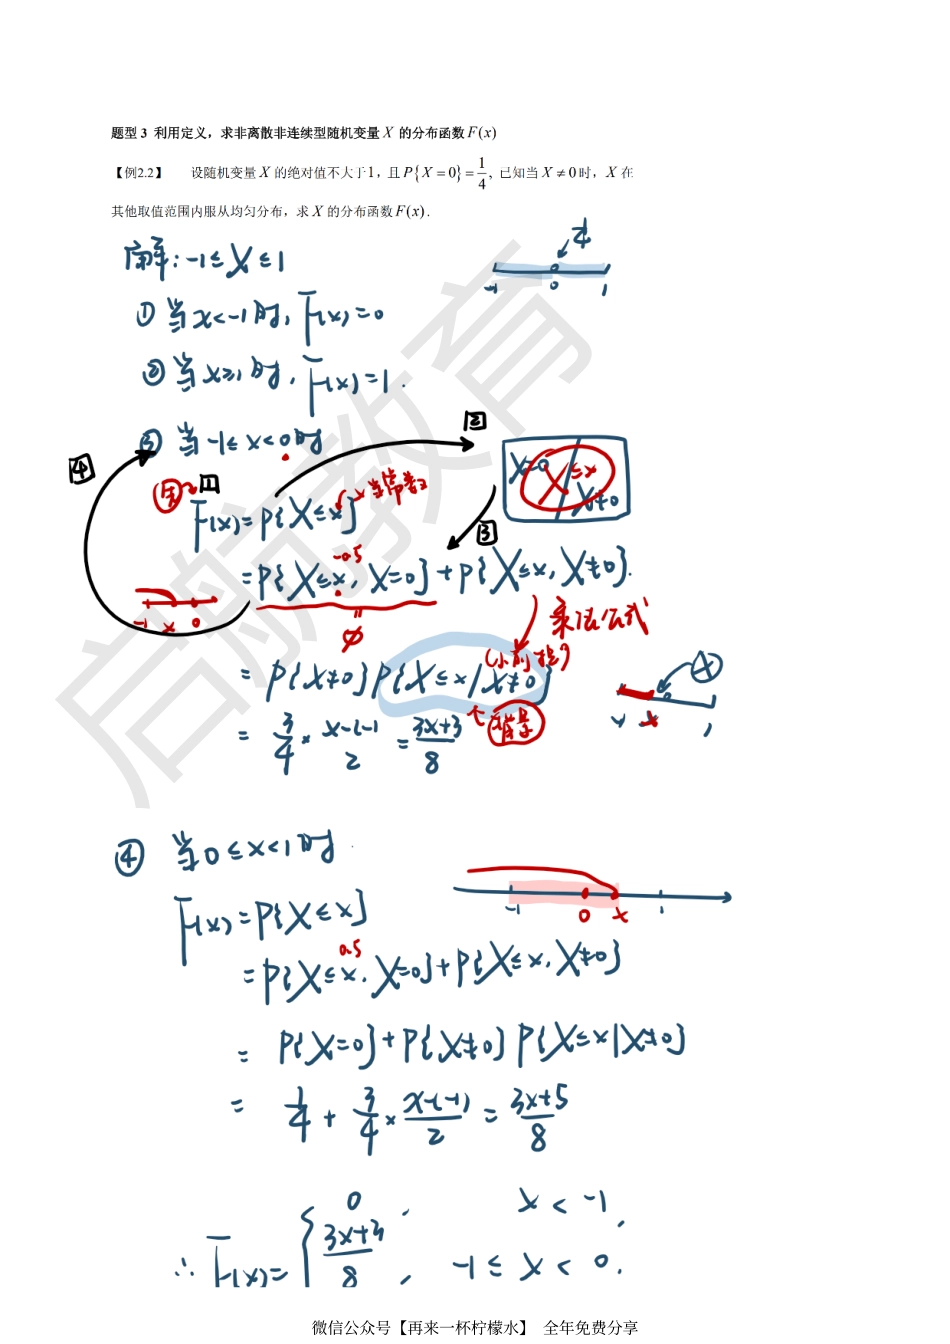 题型 3 利用定义，求非离散非连续型随机变量 X 的分布函数 F(x)
【例2.2】 设随机变量 X 的绝对值不大于1，且 P{X=0}=1/4, 已知当 X≠0时，X 在
其他取值范围内服从均匀分布，求 X 的分布函数F(x).
解：-1≤X≤1
1/4
-1 0 1
① 当x<-1时，F(x)=0
② 当x≥1时，F(x)=1.
③ 当-1≤x<0时
2
4
1
X=0 X≤x X≠0
F(x)=P{X≤x} x当常数
3
-0.5
=P{X≤x, X=0}+P{X≤x, X≠0}.
-1 x 0
∅
乘法公式
=P{X≠0}P{X≤x|X≠0}
背景
=3/4×x-(-1)/2=3x+3/8
-1 x 1
④ 当0≤x<1时
-1 0 x 1
F(x)=P{X≤x}
0.5
=P{X≤x, X=0}+P{X≤x, X≠0}
=P{X=0}+P{X≠0}P{X≤x|X≠0}
=1/4+3/4×x-(-1)/2=3x+5/8
0, x<-1,
∴F(x)={3x+3/8, -1≤x<0.
启航教育
微信公众号【再来一杯柠檬水】 全年免费分享